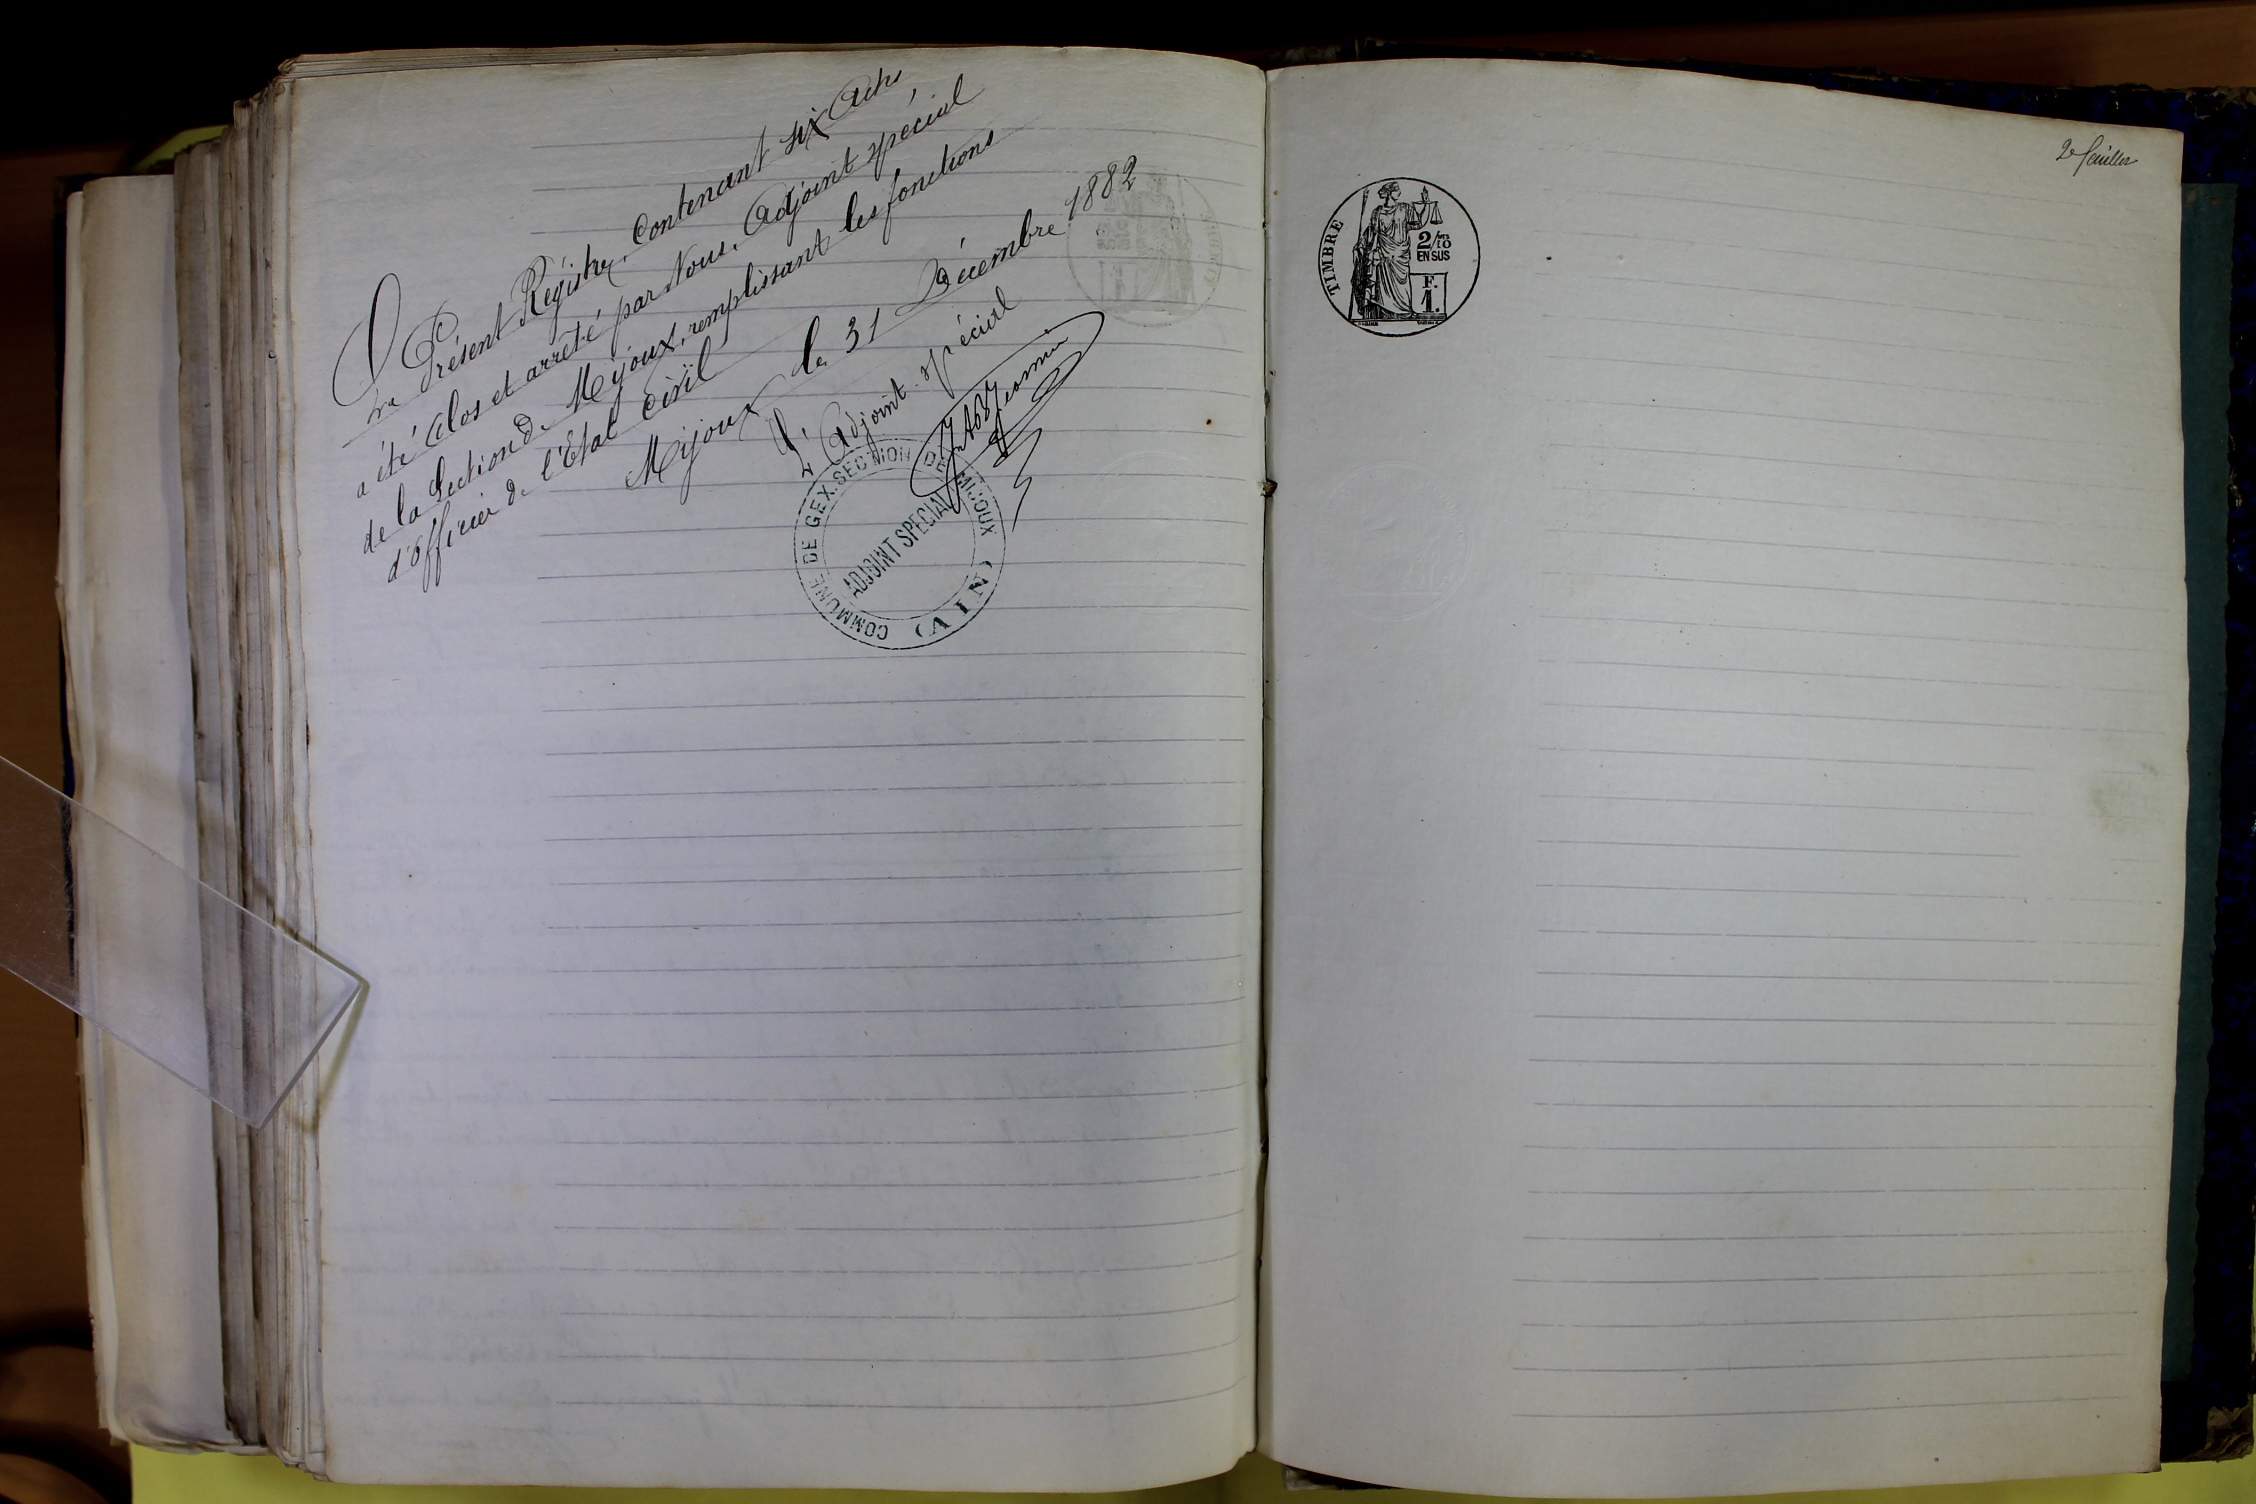 Le Présent Régistre, Contenant six Actes,
a été Clos et arrêté par Nous, Adjoint spécial
de la Section de Mijoux, remplissant les fonctions
d'officier de l'Etat civil
Mijoux le 31 Décembre 1882
L'Adjoint spécial
COMMUNE DE GEX. SECTION DE MIJOUX
(AIN)
ADJOINT SPECIAL
2e feuillet
TIMBRE
2/10
EN SUS
F.
1.